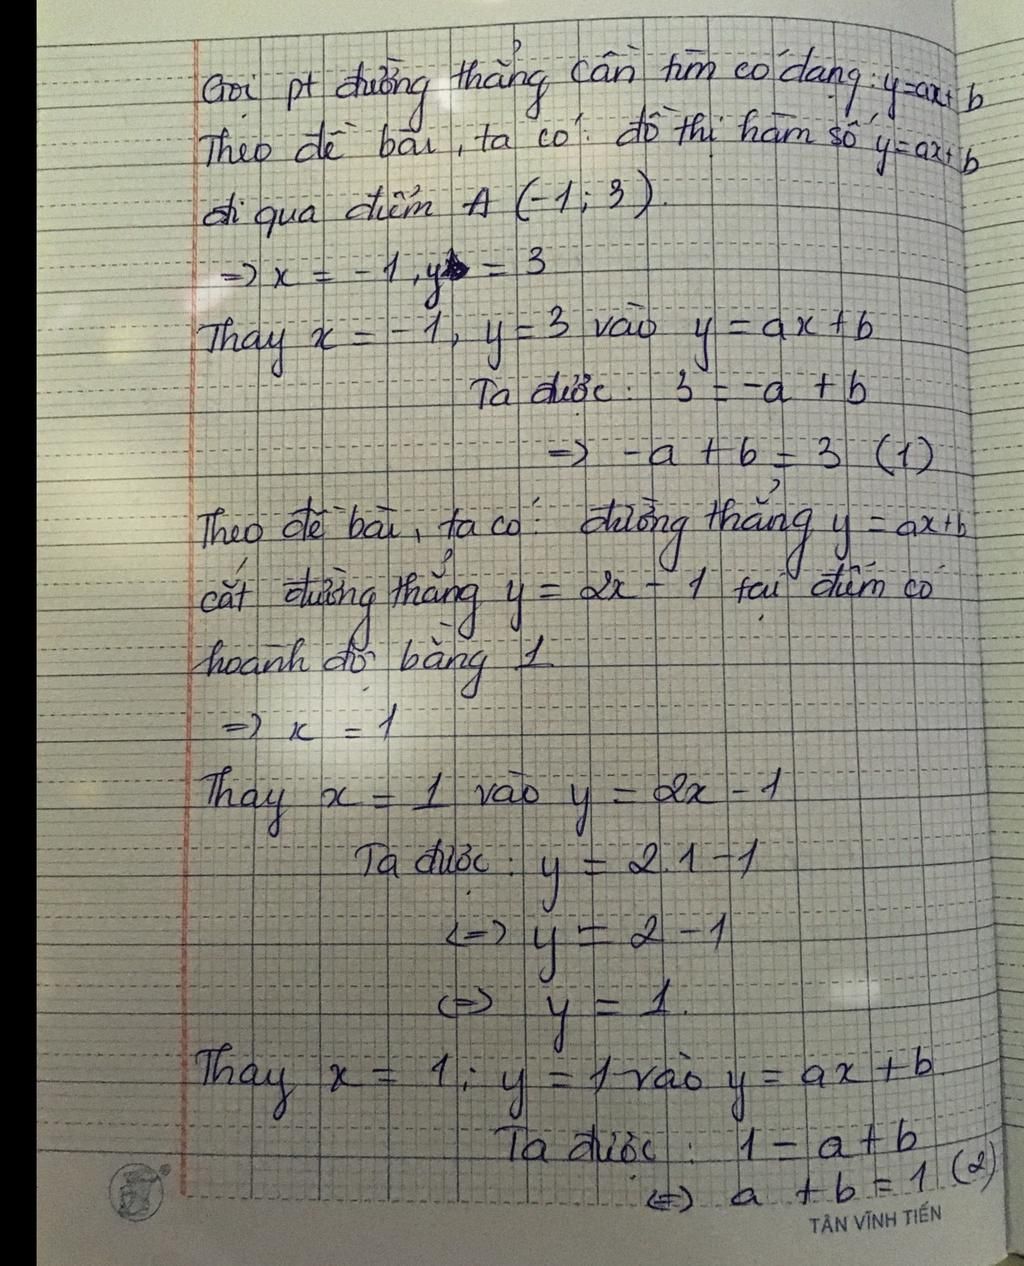 Gọi pt đường thẳng cần tìm có dạng: y=ax+b
Theo đề bài, ta có: đồ thị hàm số y=ax+b
đi qua điểm A (-1; 3).
=> x = -1, y = 3
Thay x = -1, y = 3 vào y = ax + b
Ta được: 3 = -a + b
=> -a + b = 3 (1)
Theo đề bài, ta có: đường thẳng y = ax+b
cắt đường thẳng y = 2x - 1 tại điểm có
hoành độ bằng 1
=> x = 1
Thay x = 1 vào y = 2x - 1
Ta được: y = 2.1 - 1
<=> y = 2 - 1
<=> y = 1.
Thay x = 1; y = 1 vào y = ax + b
Ta được: 1 = a + b
<=> a + b = 1 (2)
TÂN VĨNH TIẾN